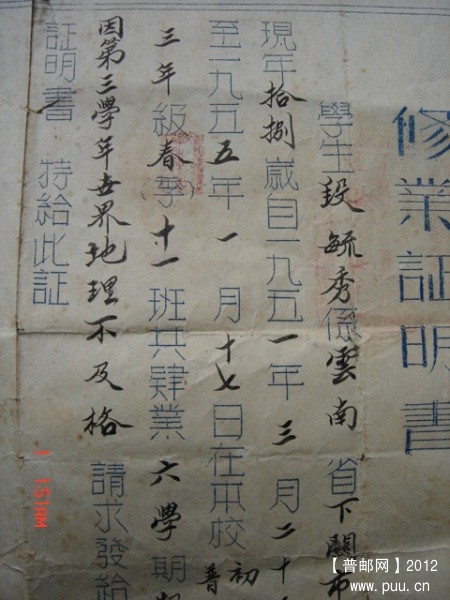 修業証明書
學生段毓秀係雲南省下關市
現年拾捌歲自一九五一年三月二十
至一九五五年一月十七日在本校初
普
三年級春(季)十一班共肄業六學期
因第三學年世界地理不及格請求發給
証明書特給此証
1 1:51AM
【普邮网】2012
www.puu.cn